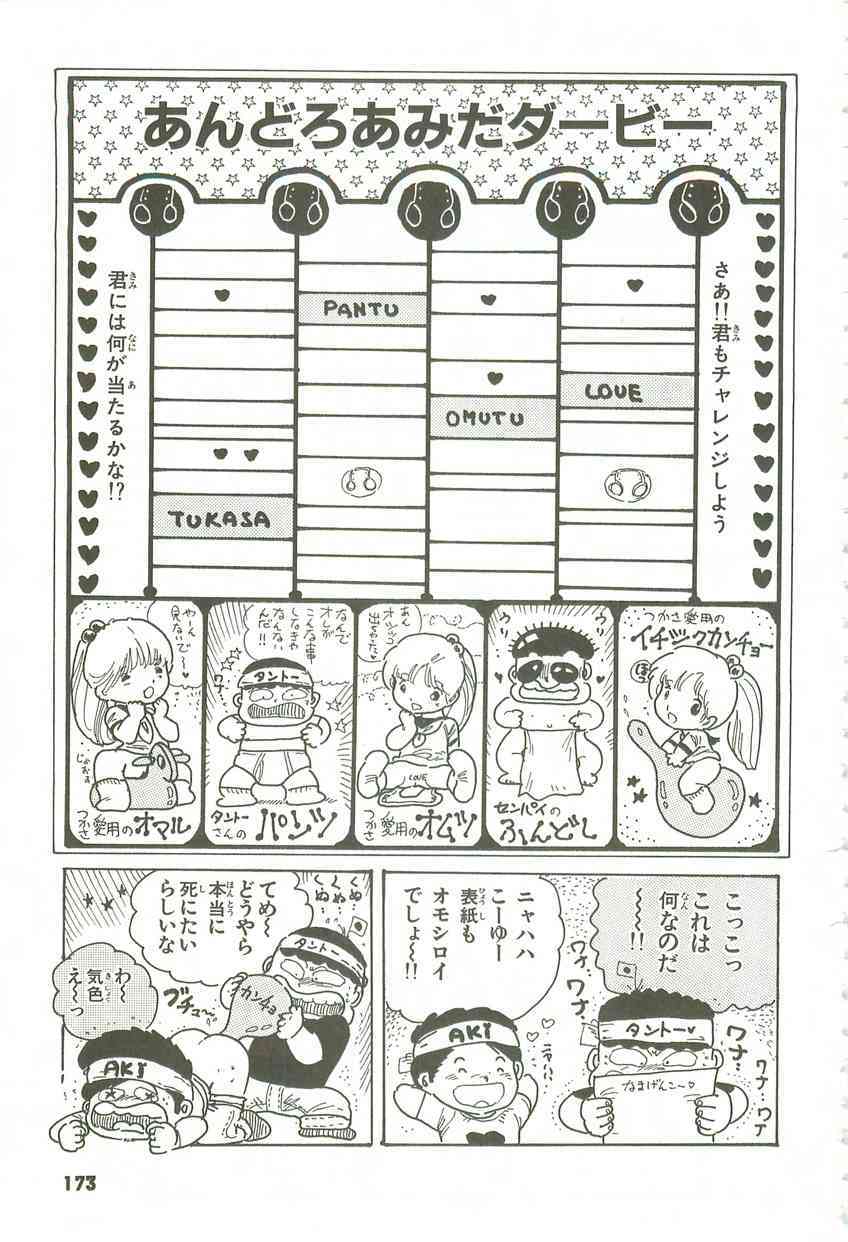 あんどろあみだダービー
さあ!!君もチャレンジしよう
君には何が当たるかな!?
PANTU
LOVE
OMUTU
TUKASA
つかさ愛用の
イチジクカンチョー
ウ
ウ
センパイの
ふんどし
あん
オシッコ
出ちゃった
LOVE
つかさ愛用のオムツ
なんで
オレが
こんな事
しなきゃ
なんない
んだ!!
タントー
ワナ
タントー
さんの
パンツ
やーん
見ないで〜
じょおお
つかさ愛用のオマル
こっこっ
これは
何なのだ
〜〜!!
ワナ、ワナ、
タントー
なまげんこ〜
ワナ、
ワナ、ワナ
ニャハハ
こーゆー
表紙も
オモシロイ
でしょ〜!!
AKI
くぬ、
くぬ、
くぬ、
てめ〜
どうやら
本当に
死にたい
らしいな
タントー
カンチョ
ブチュ〜
わ〜
気色
え〜っ
AKI
173